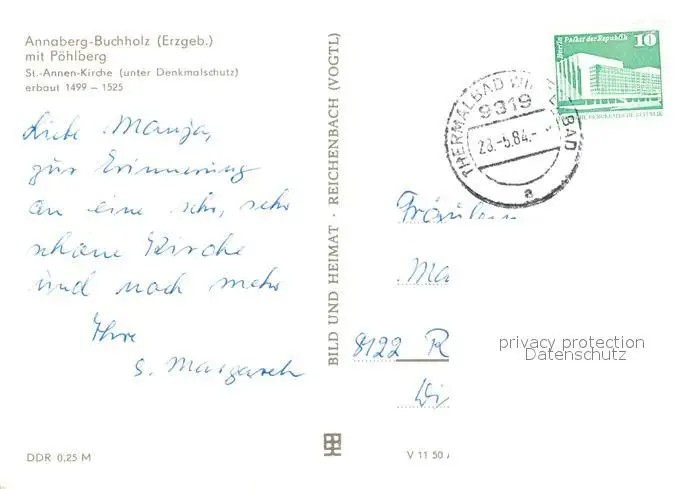 Annaberg-Buchholz (Erzgeb.)
mit Pöhlberg
St.-Annen-Kirche (unter Denkmalschutz)
erbaut 1499 – 1525
Liebe Manja,
zur Erinnerung
an eine sehr, sehr
schöne Kirche
und noch mehr
Ihre
S. Margareth
DDR 0,25 M
BILD UND HEIMAT · REICHENBACH (VOGTL)
V 11 50
Berlin Palast der Republik
10
THERMALBAD
9319
28.-5.84.-
a
Fräulein
Ma
8122 R
privacy protection
Datenschutz